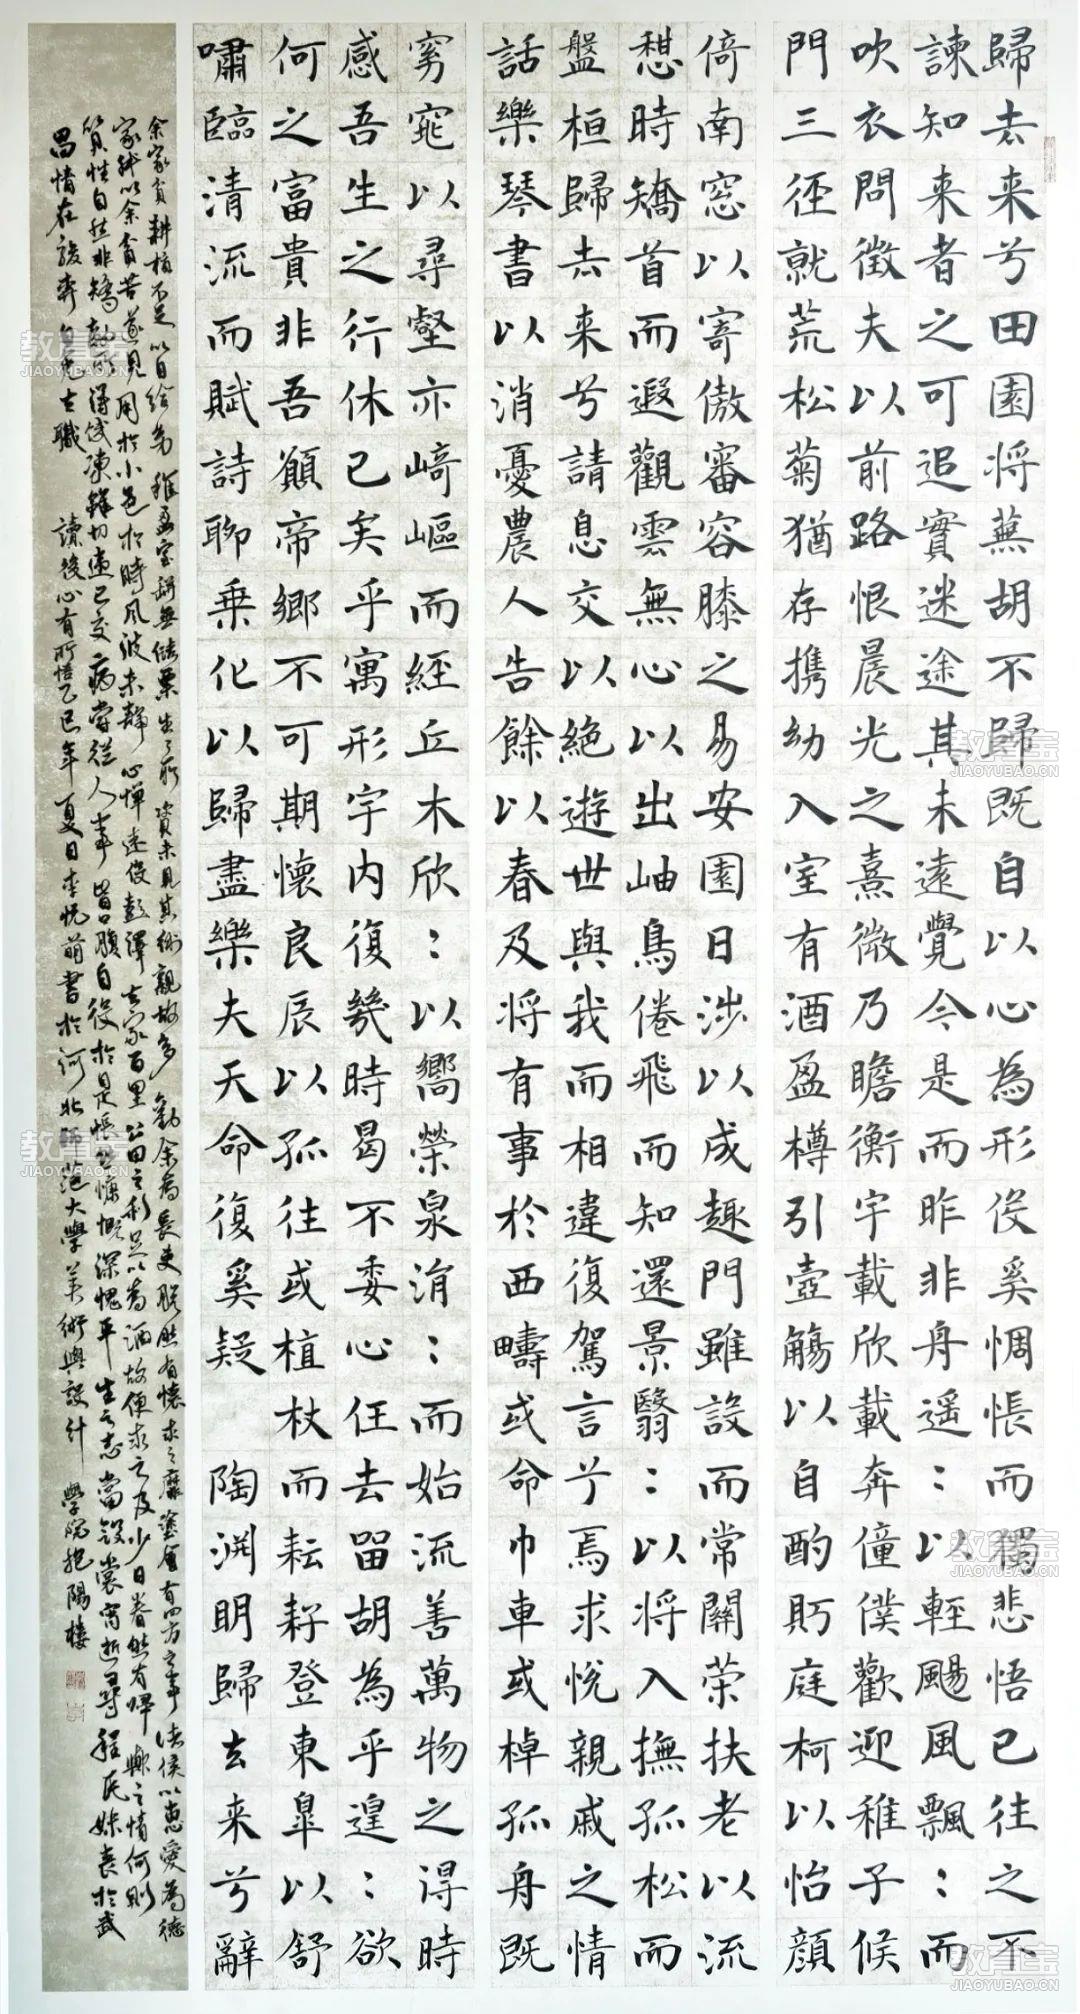 歸去来兮田園将蕪胡不歸既自以心為形役奚惆悵而獨悲悟已往之不
諫知来者之可追實迷途其未遠覺今是而昨非舟遥:以輕颺風飄:而
吹衣問徵夫以前路恨晨光之熹微乃瞻衡宇載欣載奔僮僕歡迎稚子候
門三徑就荒松菊猶存携幼入室有酒盈樽引壺觴以自酌眄庭柯以怡顔
倚南窓以寄傲審容膝之易安園日涉以成趣門雖設而常關荣扶老以流
憇時矯首而遐觀雲無心以出岫鳥倦飛而知還景翳:以将入撫孤松而
盤桓歸去来兮請息交以絶遊世與我而相違復駕言兮焉求悦親戚之情
話樂琴書以消憂農人告餘以春及将有事於西疇或命巾車或棹孤舟既
窈窕以尋壑亦崎嶇而經丘木欣:以嚮榮泉涓:而始流善萬物之得時
感吾生之行休已矣乎寓形宇内復幾時曷不委心任去留胡為乎遑:欲
何之富貴非吾願帝鄉不可期懷良辰以孤往或植杖而耘耔登東皐以舒
嘯臨清流而賦詩聊乗化以歸盡樂夫天命復奚疑 陶渊明歸去来兮辭
余家貧耕植不足以自給幼稚盈室缾無儲粟生之所資未見其術親故多勸余為長吏脫然有懷求之靡塗會有四方之事諸侯以惠愛為德
家叔以余貧苦遂見用於小邑於時風波未靜心憚遠役彭澤去家百里公田之利足以為酒故便求之及少日眷然有歸歟之情何則
質性自然非矯勵所得飢凍雖切違己交病嘗從人事皆口腹自役於是悵然慷慨深愧平生之志當斂裳宵逝尋程氏妹喪於武
昌情在駿奔自免去職 讀後心有所悟乙巳年夏日李悦萌書於河北師范大學美術與設計學院抱陽樓
教育宝
JIAOYUBAO.CN
教育宝
JIAOYUBAO.CN
教育宝
JIAOYUBAO.CN
教育宝
JIAOYUBAO.CN
教育宝
JIAOYUBAO.CN